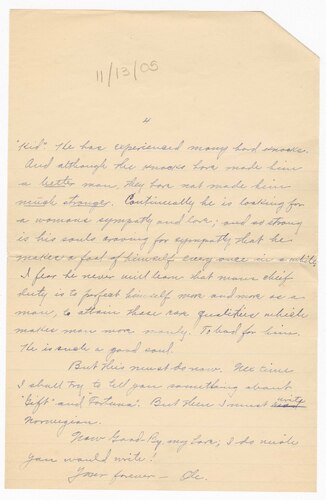 11/13/05
"
"Kid". He has experienced many bad knocks.
And although the knocks have made him
a better man, they have not made him
much stronger. Continually he is looking for
a womans sympathy and love; and so strong
is his souls craving for sympathy that he
makes a fool of himself every once in a while.
I fear he never will learn that mans chief
duty is to perfect himself more and more as a
man, to attain those rare qualities which
makes man more manly. To bad for him.
He is such a good soul.
But this must do now. Next time
I shall try to tell you something about
"Gift" and Fortuna". But then I must write
Norwegian.
Now Good-By, my Love; I do wish
you would write!
Your forever — Ole.